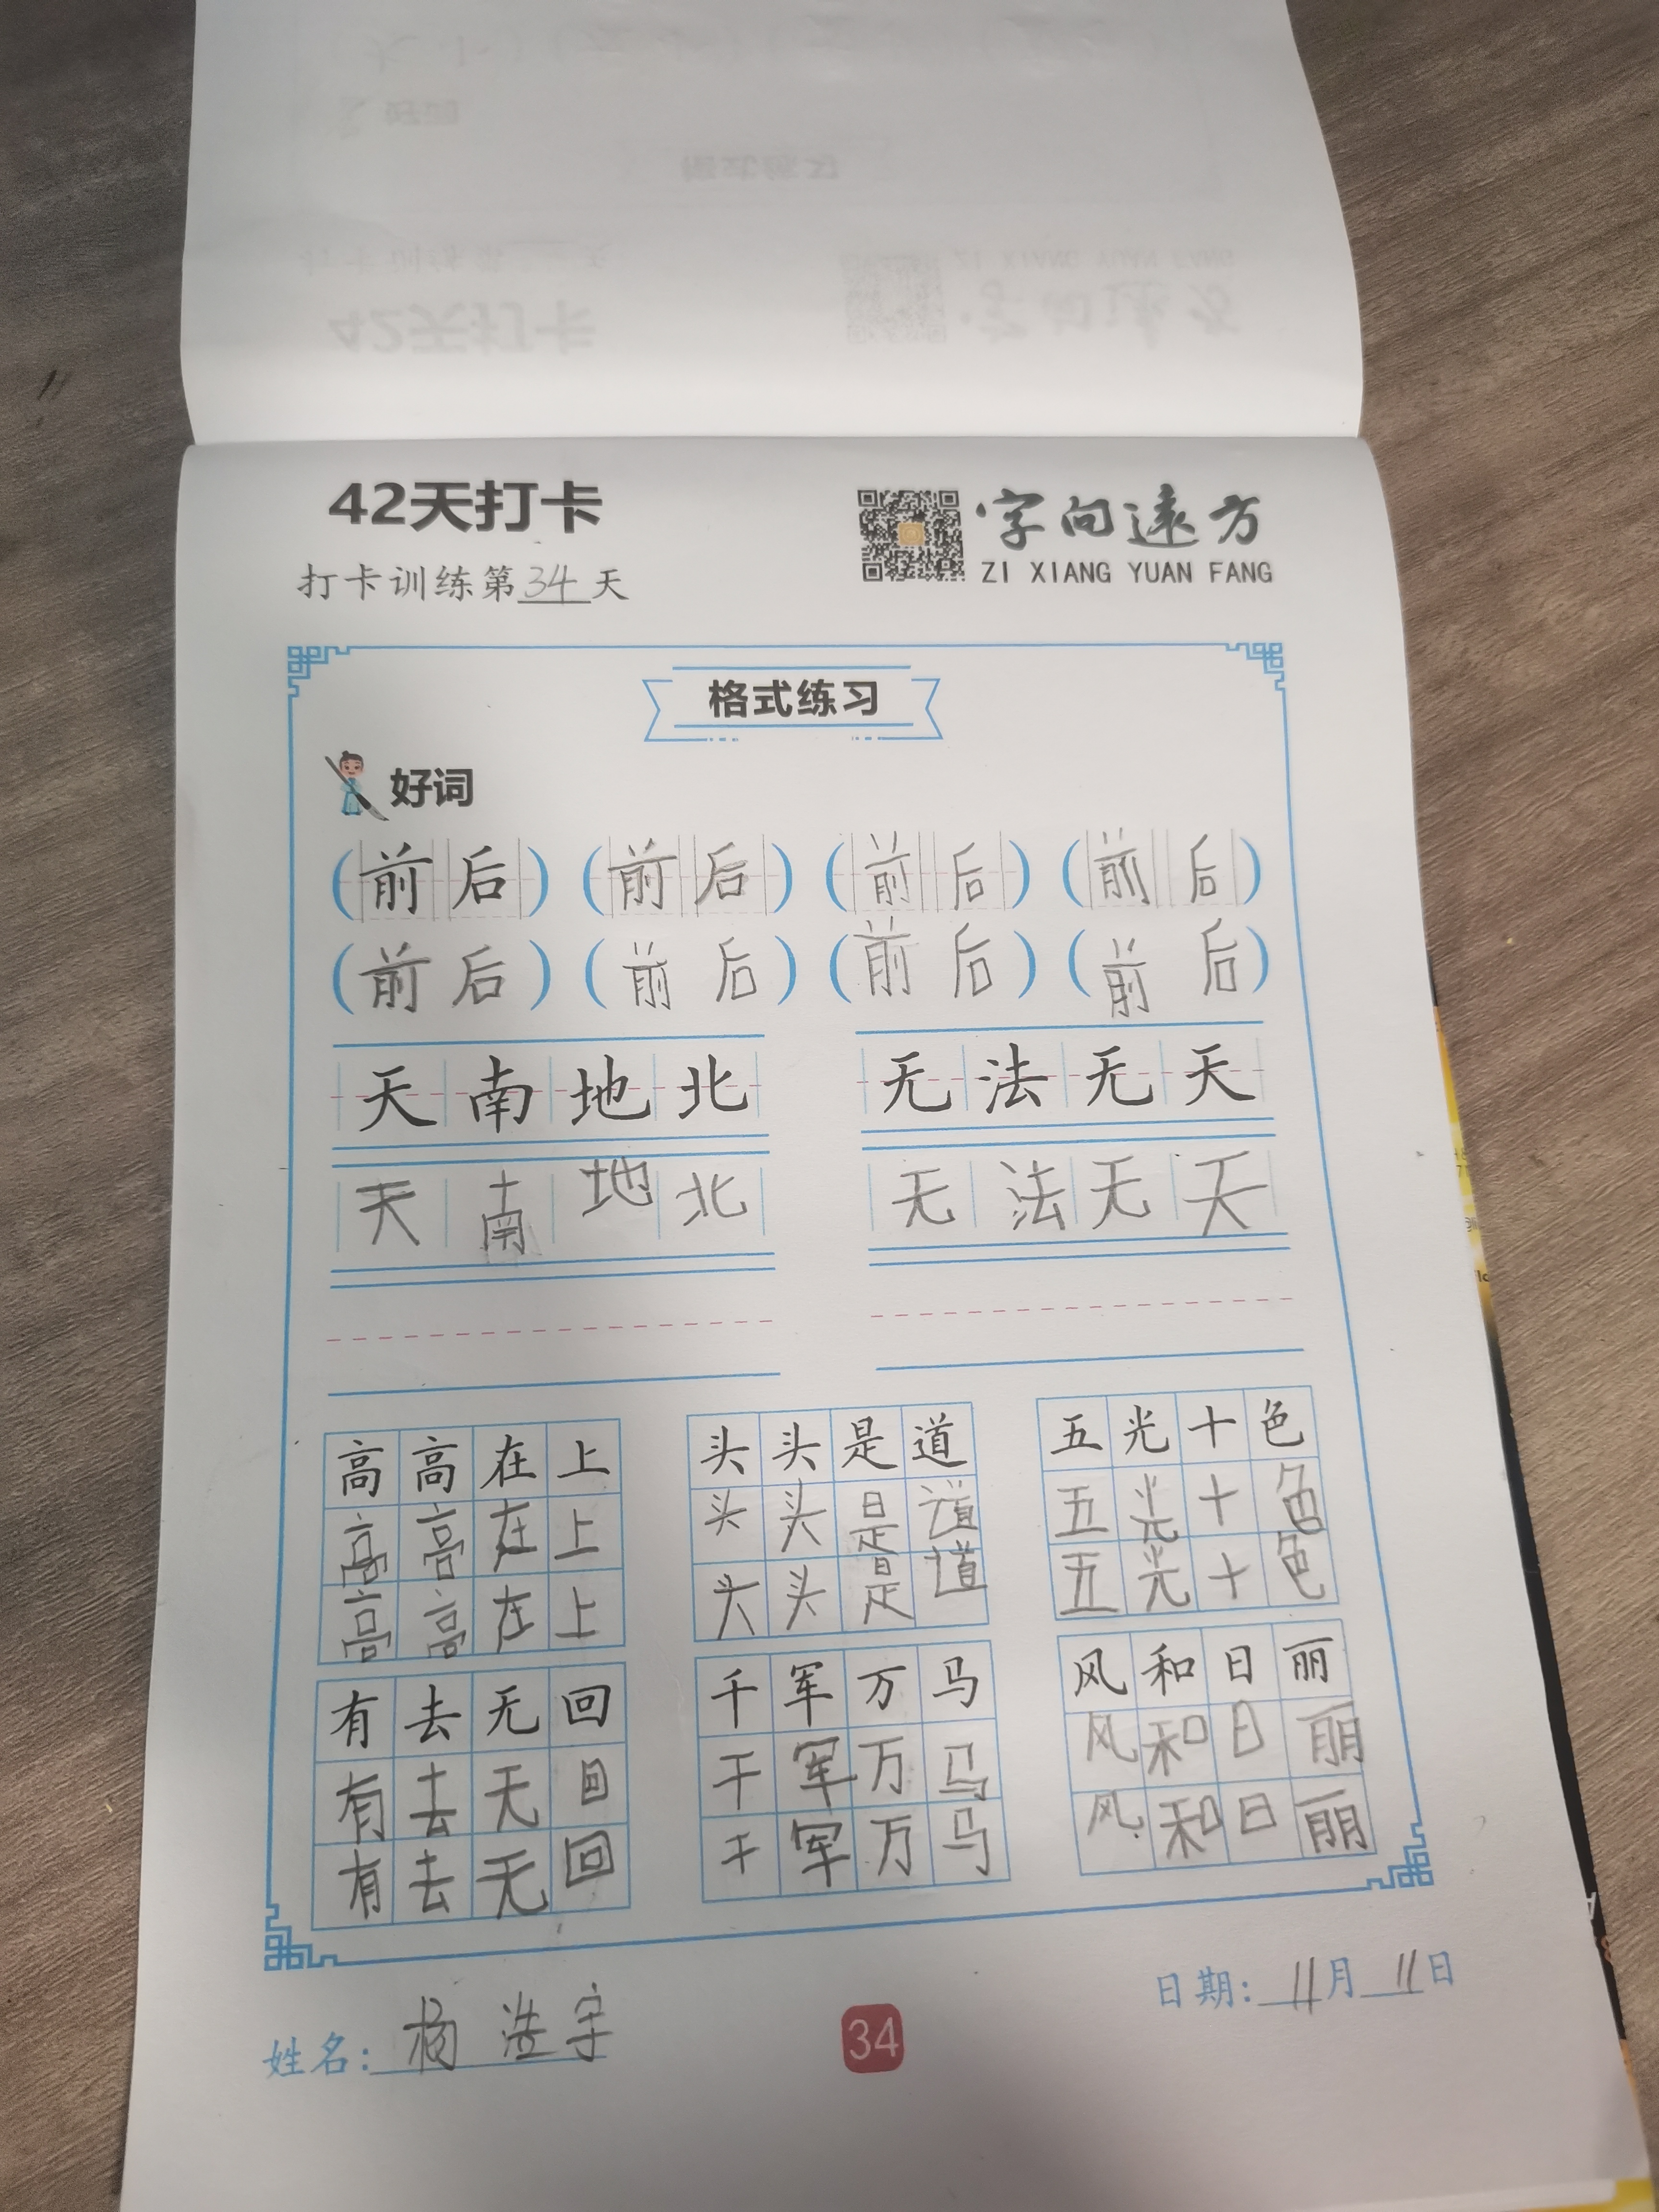 42天打卡
字向遠方
打卡训练第34天
ZI XIANG YUAN FANG
格式练习
好词
(前后) (前后) (前后) (前后)
(前后) (前后) (前后) (前后)
天南地北 无法无天
天南地北 无法无天
高高在上 头头是道 五光十色
高高在上 头头是道 五光十色
高高在上 头头是道 五光十色
有去无回 千军万马 风和日丽
有去无回 千军万马 风和日丽
有去无回 千军万马 风和日丽
日期:11月11日
姓名:杨浩宇
34